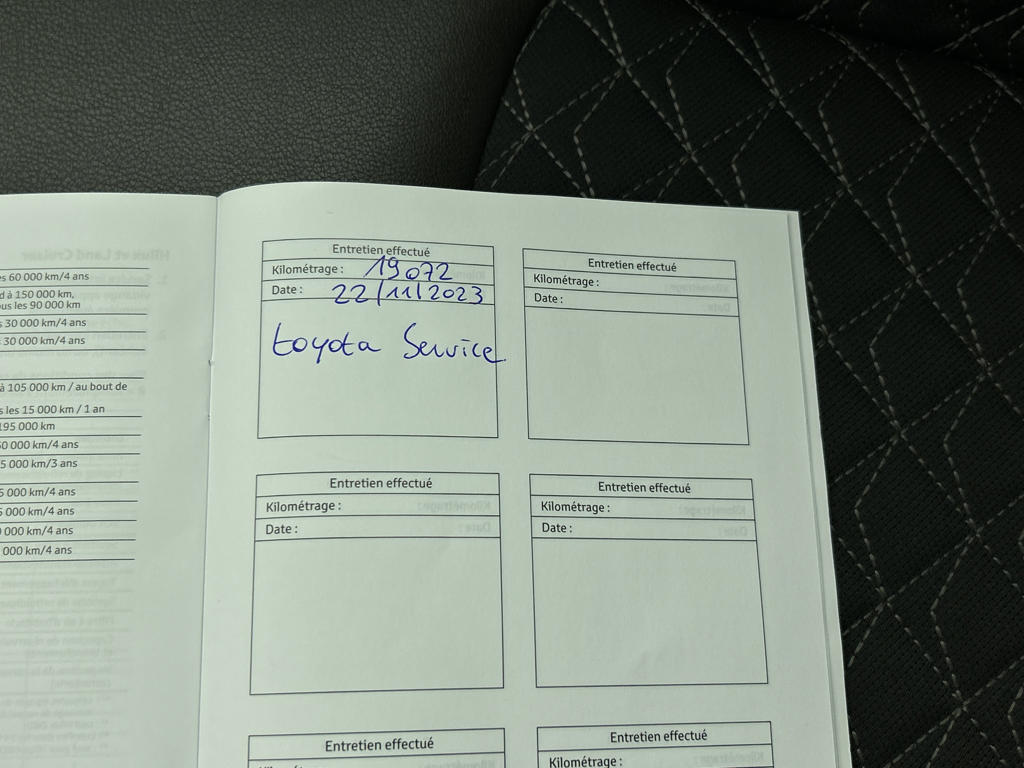 es 60 000 km/4 ans
d à 150 000 km,
ous les 90 000 km
s 30 000 km/4 ans
s 30 000 km/4 ans
à 105 000 km / au bout de
s les 15 000 km / 1 an
195 000 km
60 000 km/4 ans
5 000 km/3 ans
5 000 km/4 ans
5 000 km/4 ans
0 000 km/4 ans
000 km/4 ans
Entretien effectué
Kilométrage : 19072
Date : 22/11/2023
toyota Service
Entretien effectué
Kilométrage :
Date :
Entretien effectué
Kilométrage :
Date :
Entretien effectué
Kilométrage :
Date :
Entretien effectué
Entretien effectué
Kilométrage :